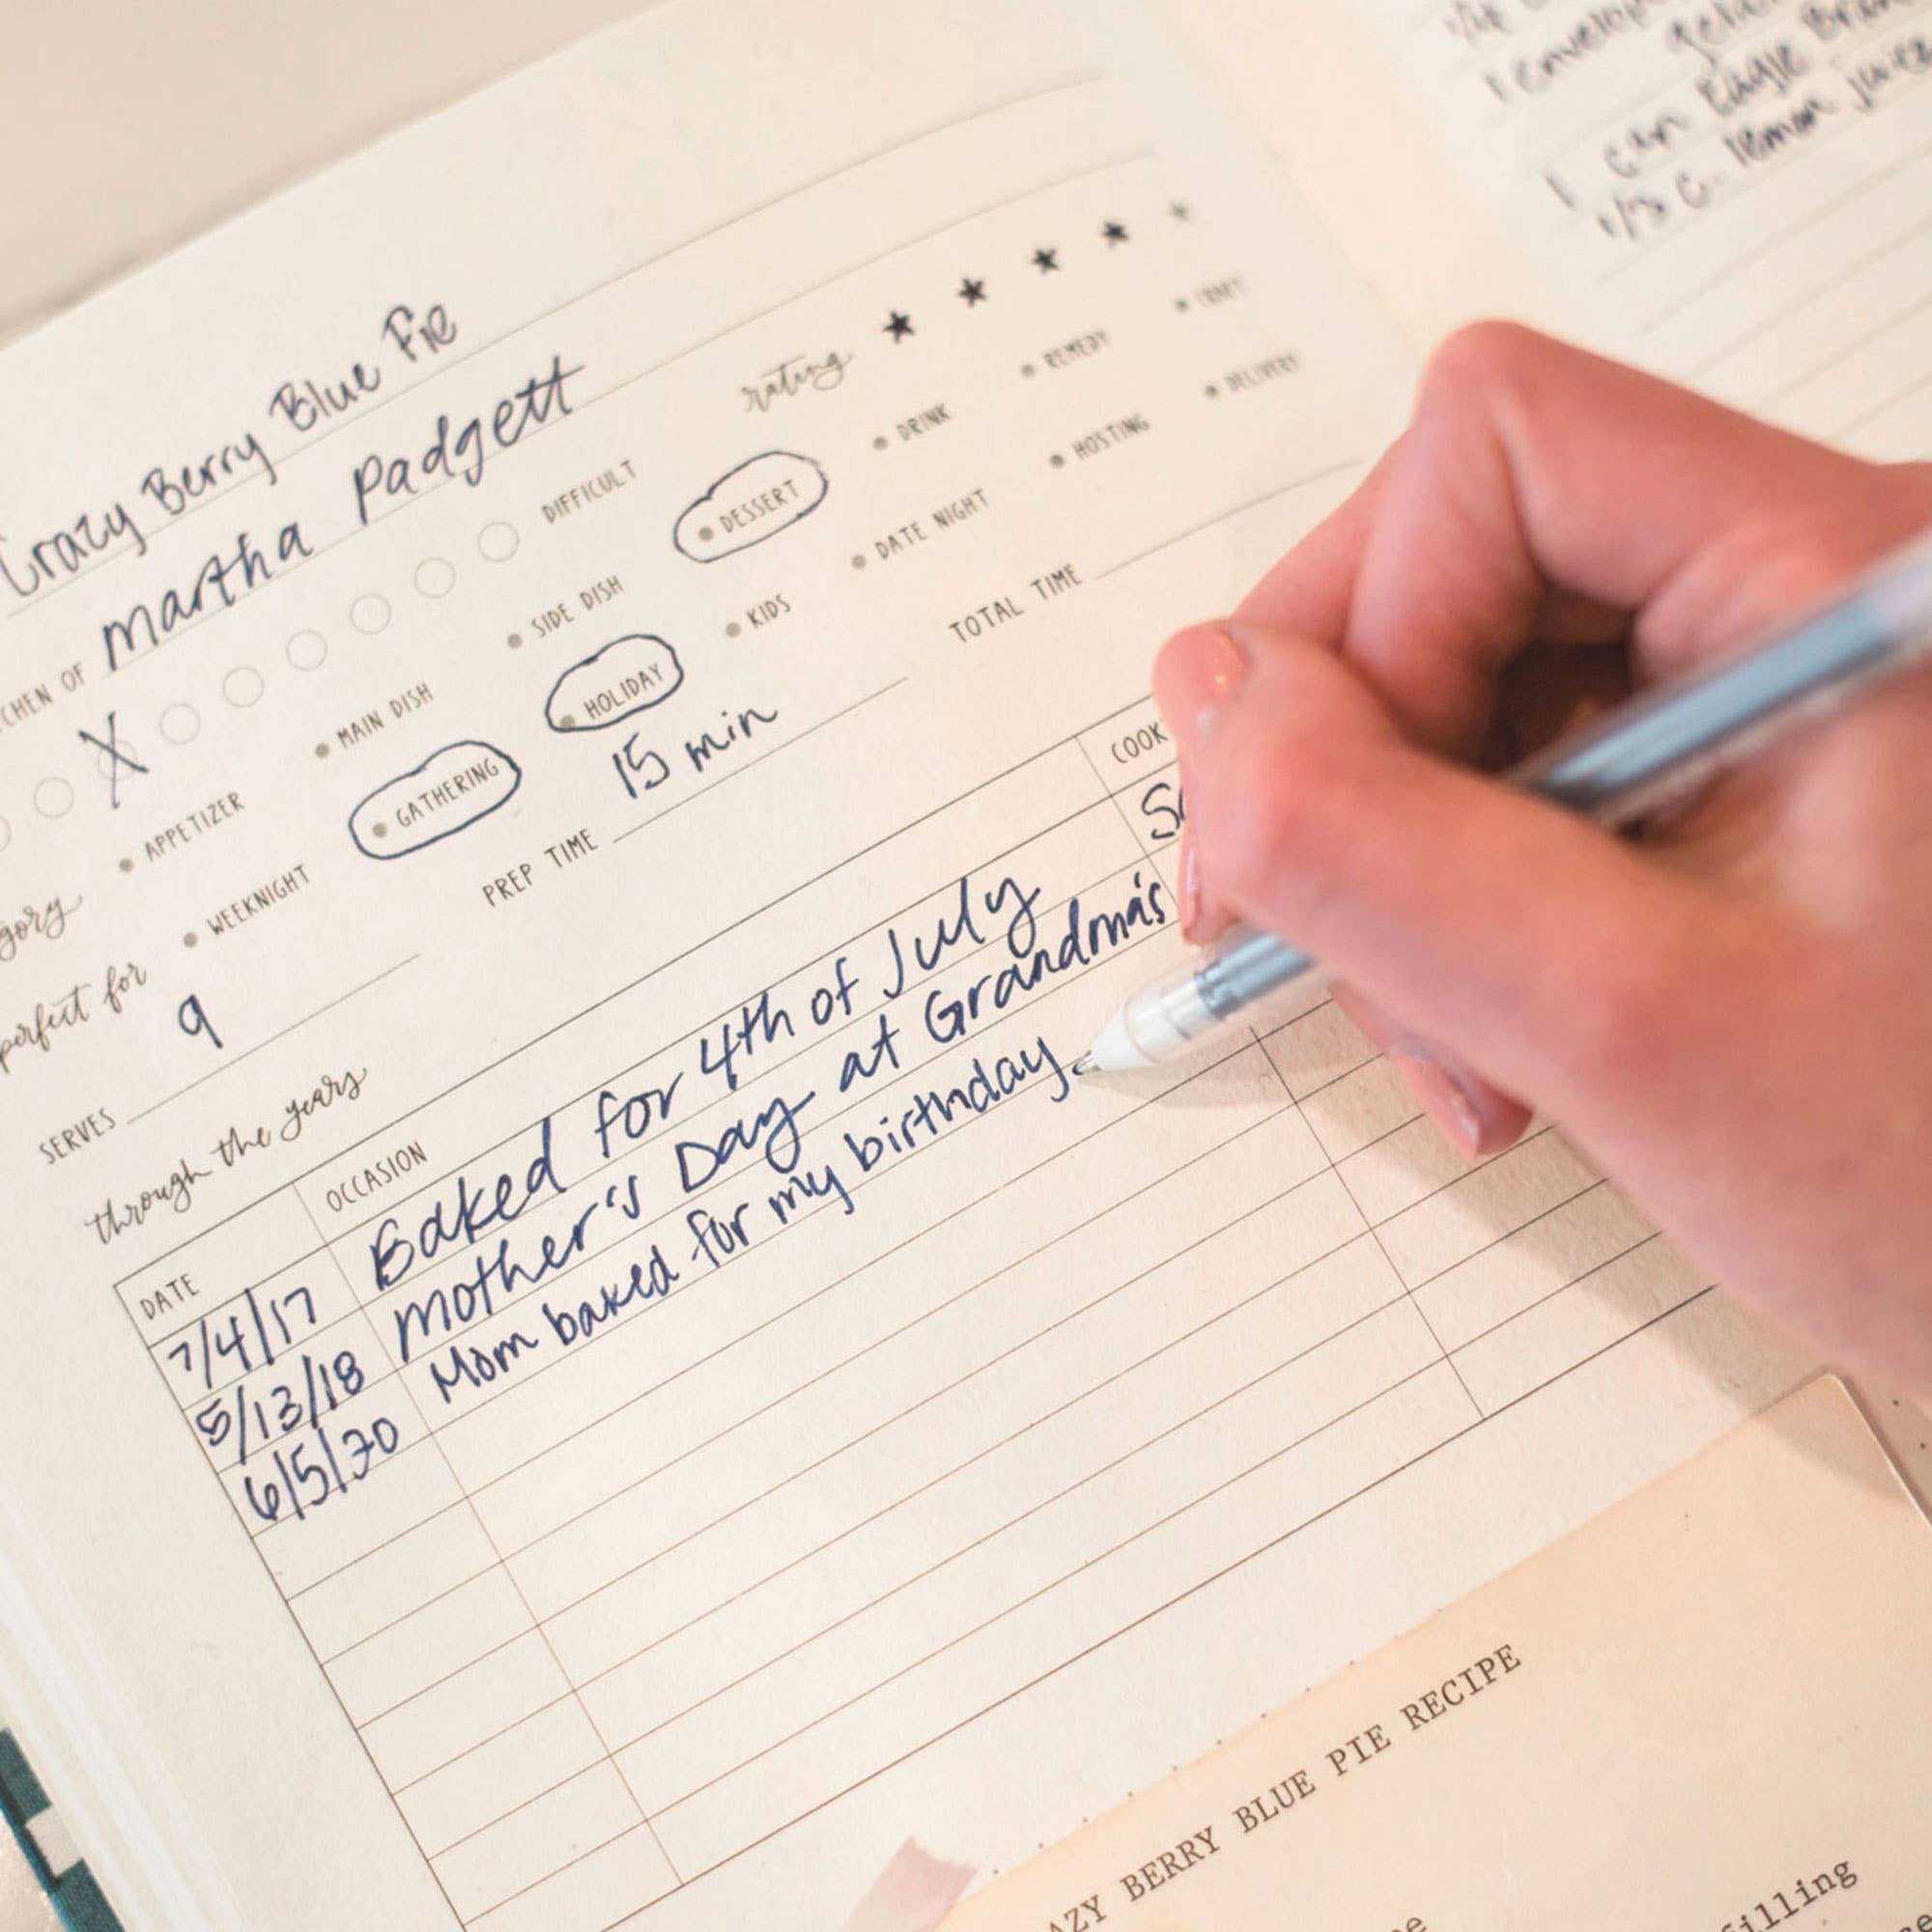 Crazy Berry Blue Pie
CHEN OF martha padgett
X DIFFICULT
rating
gory
APPETIZER MAIN DISH SIDE DISH DESSERT DRINK REMEDY CRAFT
perfect for
WEEKNIGHT GATHERING HOLIDAY KIDS DATE NIGHT HOSTING DELIVERY
SERVES 9 PREP TIME 15 min TOTAL TIME
through the years
DATE OCCASION COOK
7/4/17 Baked for 4th of July
5/13/18 mother's Day at Grandma's
6/5/20 Mom baked for my birthday.
1 envelop
1 can Eagle Bran
1/3 c. lemon juice
AZY BERRY BLUE PIE RECIPE
filling